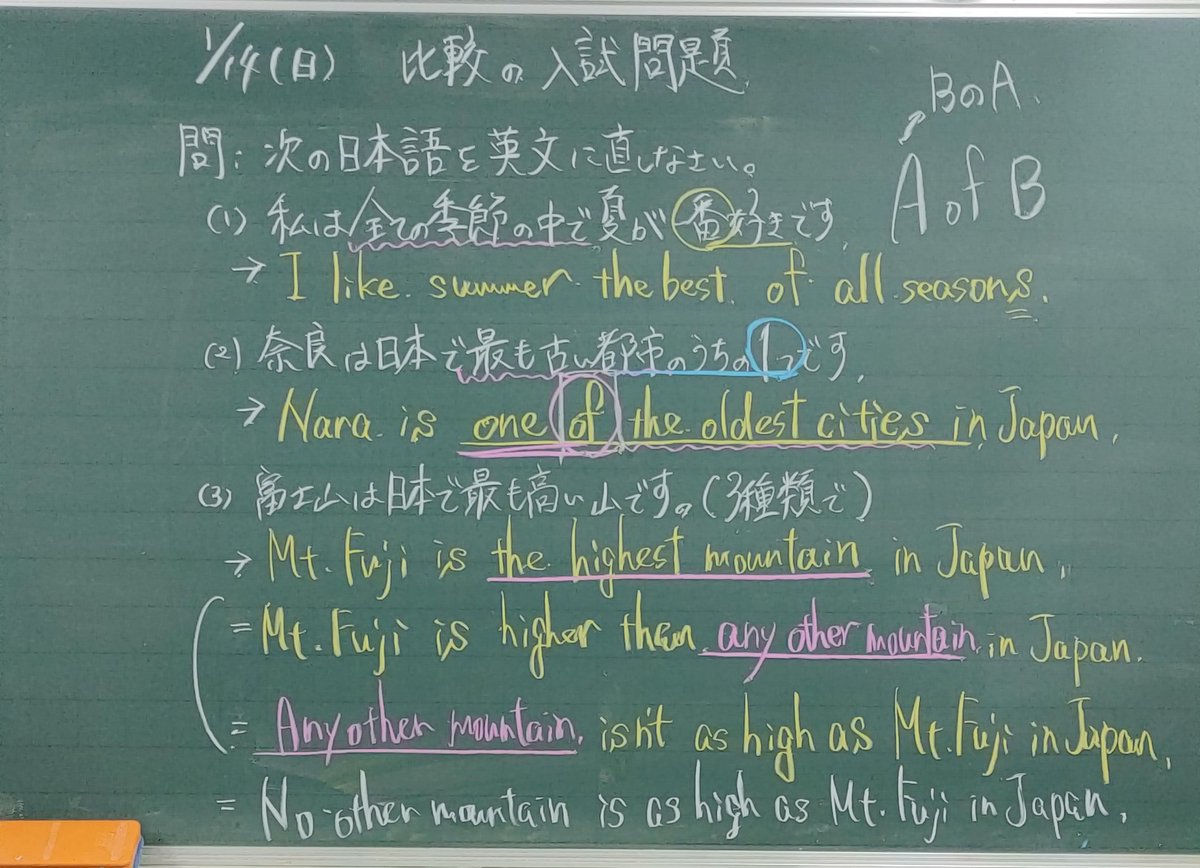 1/14(日) 比較の入試問題
BのA.
A of B
問:次の日本語を英文に直しなさい。
(1) 私は全ての季節の中で夏が一番好きです.
→ I like summer the best of all seasons.
(2) 奈良は日本で最も古い都市のうちの1つです.
→ Nara is one of the oldest cities in Japan.
(3) 富士山は日本で最も高い山です。(3種類で)
→ Mt. Fuji is the highest mountain in Japan.
= Mt. Fuji is higher then any other mountain in Japan.
= Any other mountain isn't as high as Mt. Fuji in Japan.
= No other mountain is as high as Mt. Fuji in Japan.